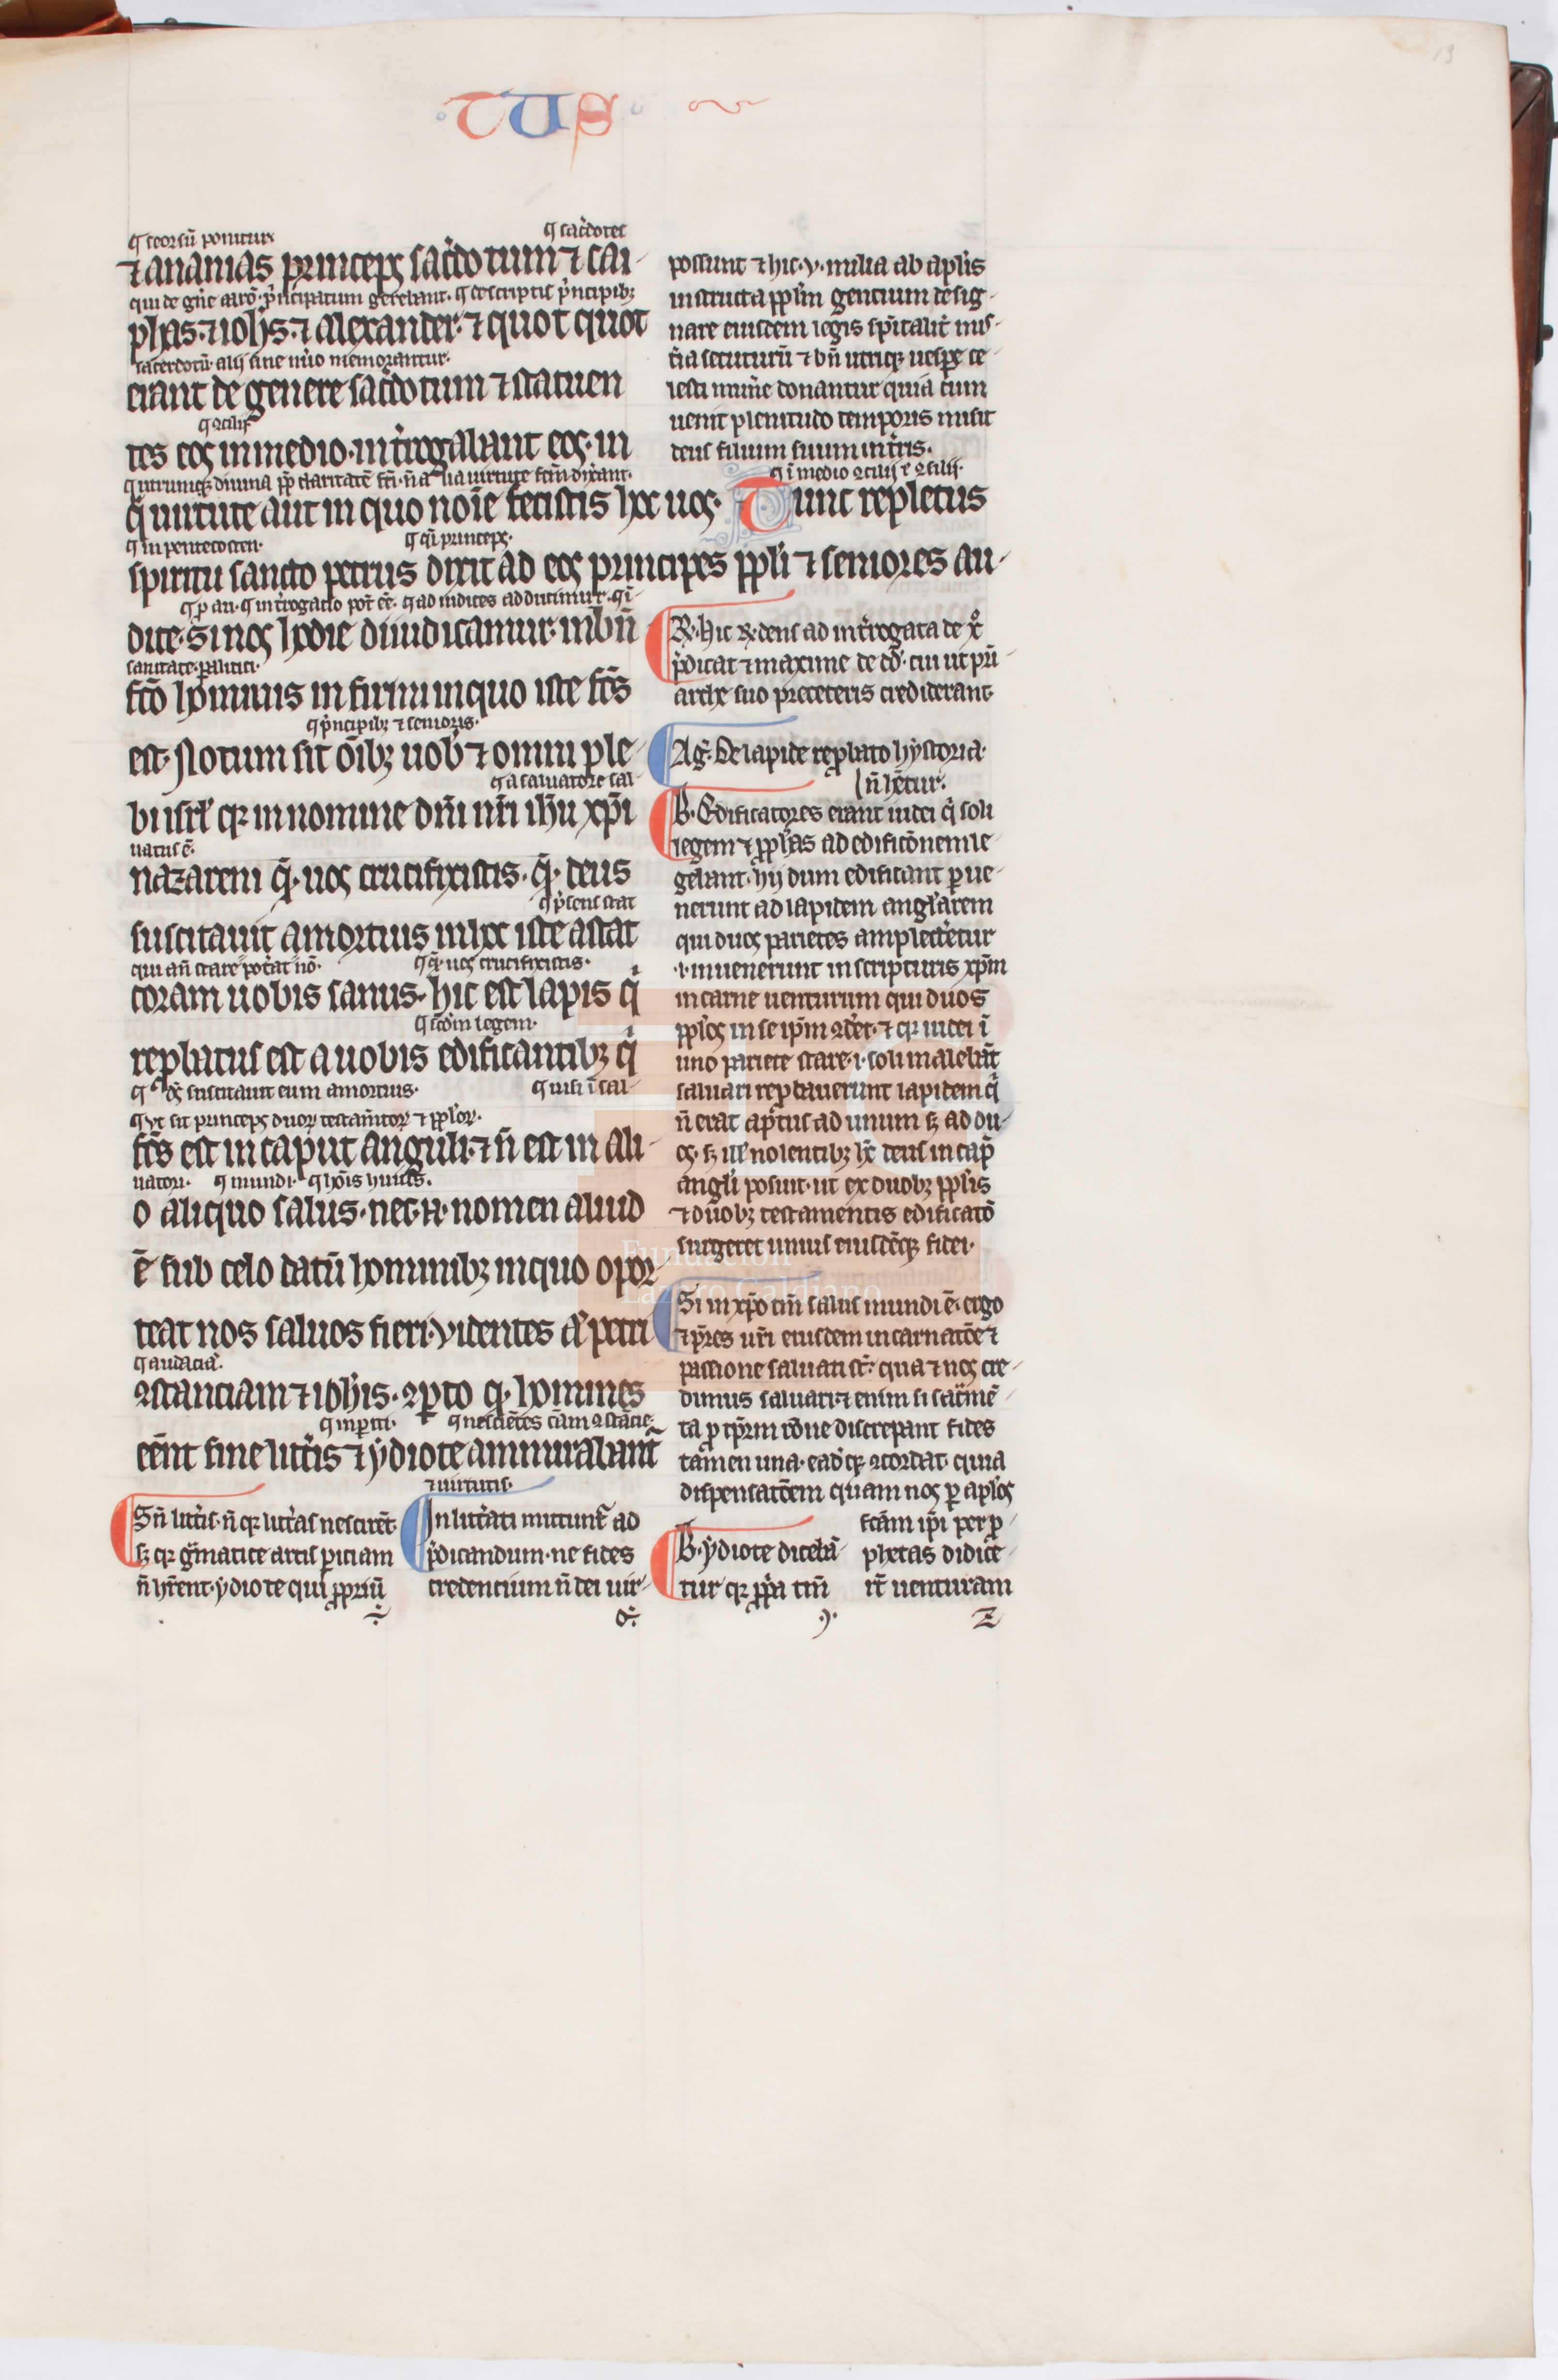 TUS
19
¶ seorsū ponitur
¶ sac̄dotes
⁊ ananias princeps sac̄dotum ⁊ cai-
qui de gn̄e aarō. p̄ncipatum gerebant. ¶ descriptis p̄ncipibꝫ
phas. ⁊ ioh̄s. ⁊ alexander. ⁊ quot quot
sacerdotū. alij sine nūo memorantur.
erant de genere sac̄dotum ⁊ statuen
¶ ꝯcilij
tes eos in medio. int̄rogabant eos. in
q̄ uirtute aut in quo noīe fecistis hoc uos.
¶ ī medio ꝯcilij
Tunc repletus
¶ in pentecosten.
¶ qi princeps.
spiritu sancto petrus dixit ad eos principes ppl̄i ⁊ seniores au-
dite. Si nos hodie diiudicamur. in bn̄
sanitate. paralitici.
fc̄o hominis infirmi in quo iste fc̄s
¶ p̄ncipibꝫ ⁊ senioris.
est. Notum sit oībꝫ uob̄ ⁊ omni ple
¶ a saluatore sal-
bi isrl̄ qꝛ in nomine dn̄i nr̄i ih̄u xp̄i
uatus ē.
nazareni q̄. uos crucifixistis. q̄. deus
¶ p̄sens stat
suscitauit a mortuis in hoc iste astat
qui an̄ stare pot̄at nō.
¶ q̄. uos crucifixistis.
coram uobis sanus. hic est lapis q̄
¶ scd̄m legem.
reprobatus est a uobis edificantibꝫ q̄
¶ q̄ ds̄ suscitauit eum a mortuis.
¶ nisi ī sal-
¶ Vt sit princeps duoꝝ testam̄toꝝ ⁊ ppl̄oꝝ.
fc̄s est in caput anguli. ⁊ n̄ est in ali-
uatori.
¶ mundi.
¶ hoīs huius.
o aliquo salus. nec. n̄. nomen aliud
ē sub celo datū hominibꝫ in quo opor-
teat nos saluos fieri. Videntes aū petri
¶ audaciā.
ꝯstanciam ⁊ ioh̄is. ꝯꝑto qꝫ homines
¶ inꝑiti.
eēnt sine litt̄is ⁊ ydiote ammirabant̄
Sn̄ litt̄is. n̄ qꝛ litt̄as nescirēt
sꝫ qꝛ gͣmatice artis ꝑiciam
n̄ hr̄ent. ydiote qui ꝓpriū
⁊ uirtutis.
Inlitt̄ati mittunt̄ ad
p̄dicandum. ne fides
credencium n̄ dei uir-
possunt ⁊ hic. v. milia ab apl̄is
instructa ppl̄m gentium desig-
nare eiusdem legis sp̄italit̄ mis-
t̄ia secuturū ⁊ bn̄ utriqꝫ uespe ce-
lesti mun̄e donantur quia cum
uenit plenitudo temporis misit
deus filium suum in tr̄is.
℞. Hic ℞. dens ad int̄rogata de xͦ
p̄dicat ⁊ maxime de dd̄. cui ut pͥ-
arche suo preceteris crediderant.
Ag̅. De lapide rep̄bato hystoria
n̄ hētur.
B. Edificatores erant iudei q̄ soli
legem ⁊ ꝓph̄as ad edificōnem le-
gebant. hij dum edificant ꝑ ue-
nerunt ad lapidem angl̄arem
qui duos parietes amplectetur
.i. inuenerunt in scripturis xp̄m
in carne uenturum qui duos
ppl̄os in se ip̄m ꝯd̄et. ⁊ qꝛ iudei ī
uno pariete stare. i. soli malebāt
saluari reprobauerunt lapidem q̄
n̄ erat aptus ad unum sꝫ ad du-
os. sꝫ ill̄ nolentibꝫ hͨ deus in cap̄
angl̄i posuit. ut ex duobꝫ ppl̄is
⁊ duobꝫ testamentis edificatō
surgeret unius eiusdēqꝫ fidei.
Si in xp̄o tm̄ salus mundi ē. ergo
⁊ pr̄es ur̄i eiusdem incarnatōe ⁊
passione saluati st̄. qua ⁊ nos cre-
dimus saluari. ⁊ enim si sac̄mē-
ta ꝓ tp̄rm rōne discrepant fides
tamen una. eadē qꝫ ꝯcordat. quia
dispensatōem quam nos ꝑ apl̄os
fc̄am ip̄i per ꝓ-
phetas didice-
rt̄ uenturam
B. ydiote diceba-
tur qꝛ ꝓpria tm̄
Fundación
Lázaro Galdiano